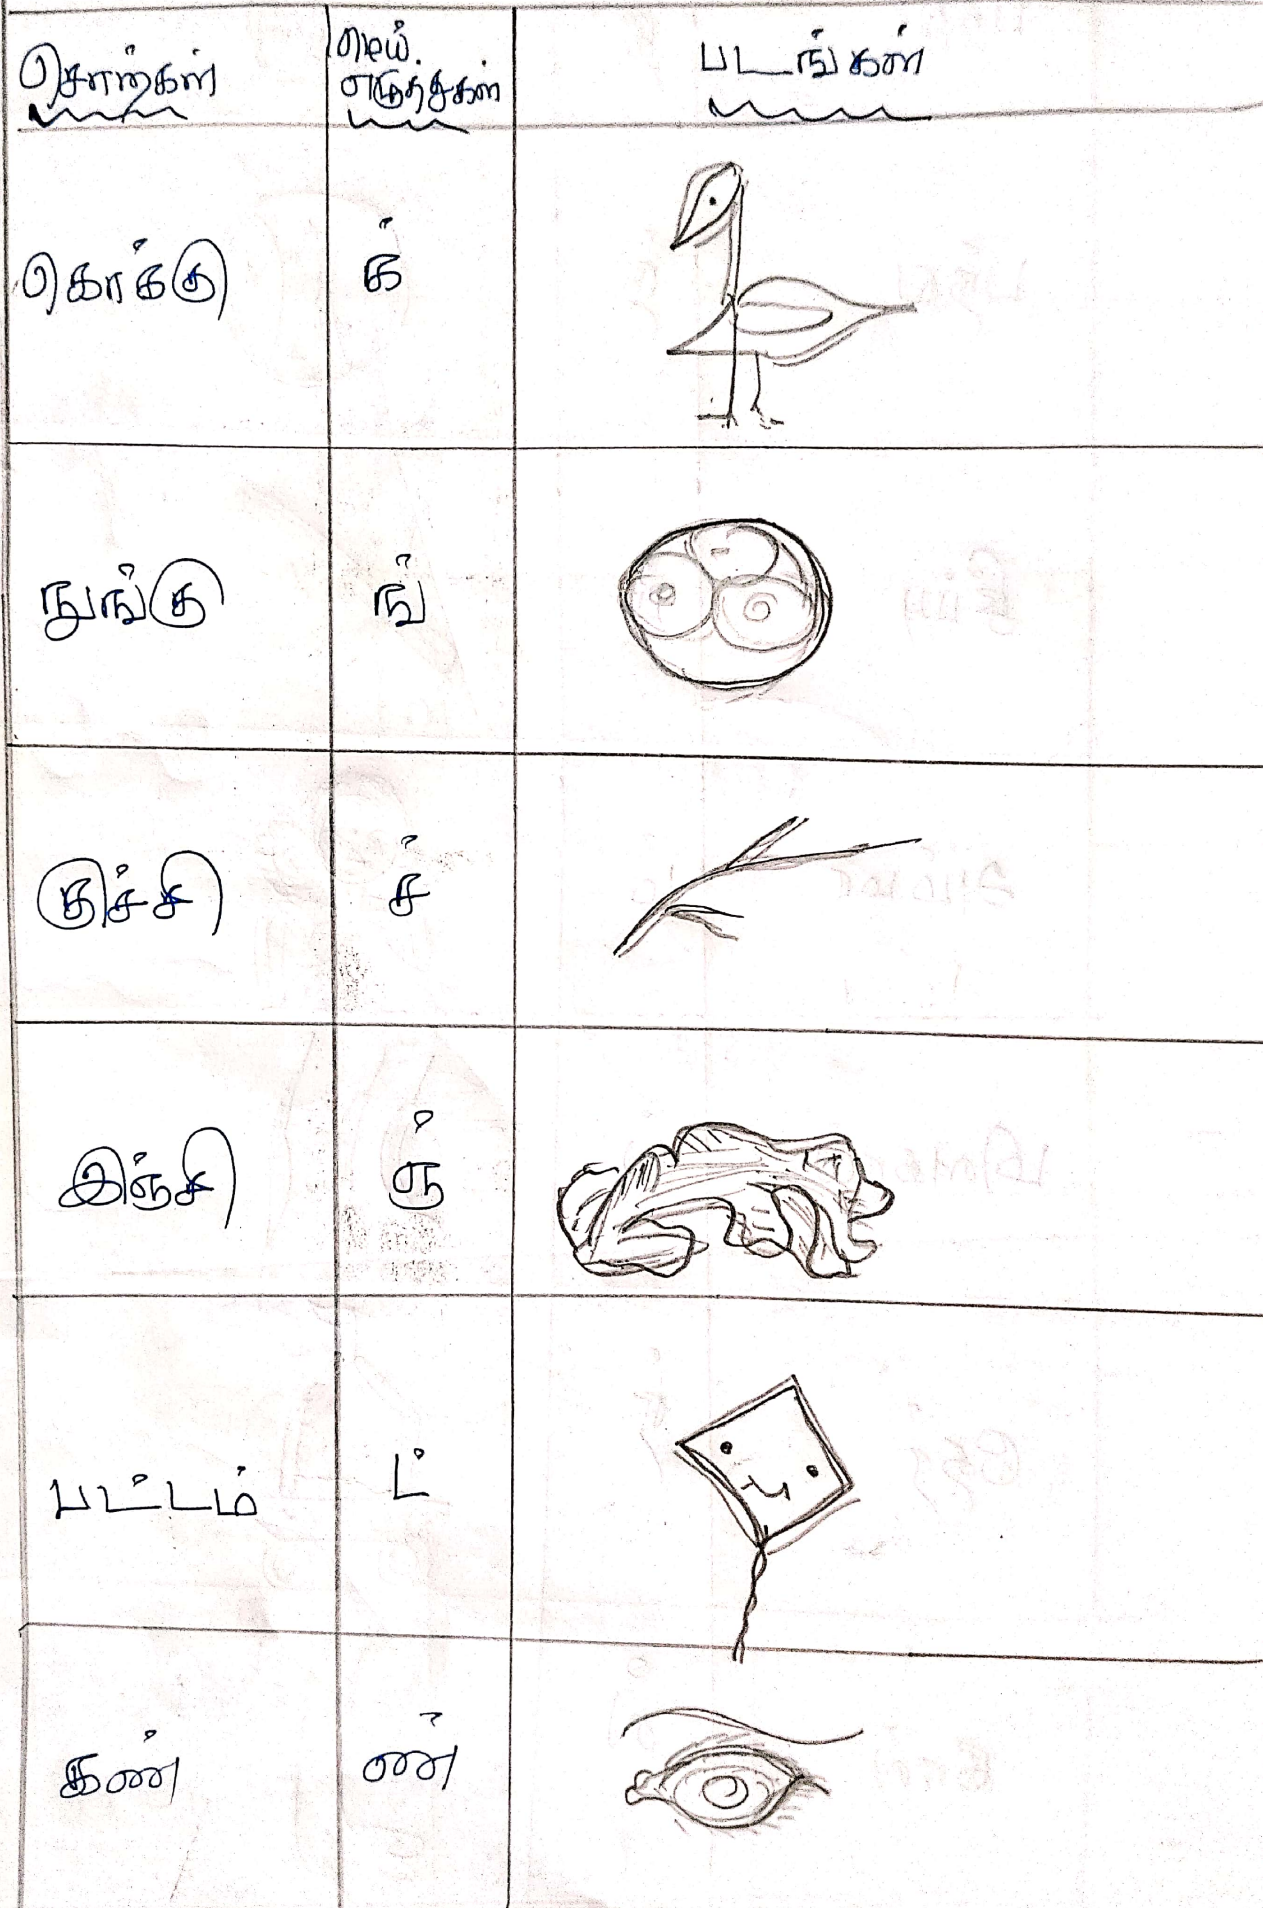 சொற்கள்
மெய்
எழுத்துகள்
படங்கள்
கொக்கு க்
நுங்கு ங்
குச்சி ச்
இஞ்சி ஞ்
பட்டம் ட்
கண் ண்